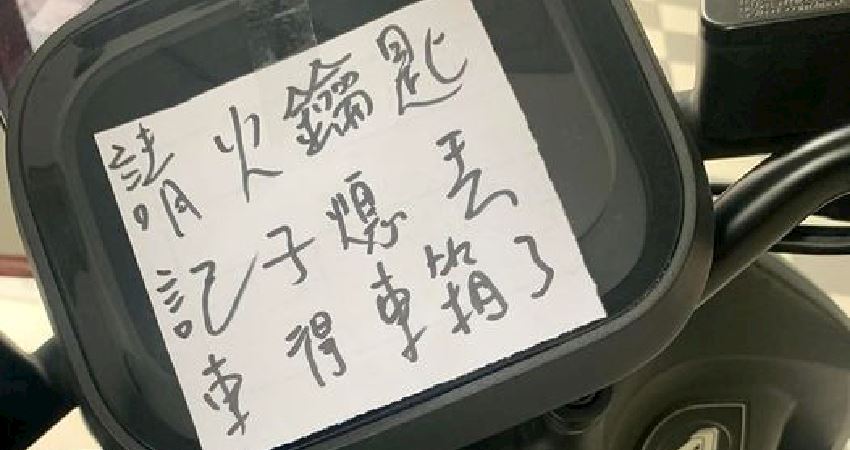 請火鑰匙
記子熄丟
車得車箱了